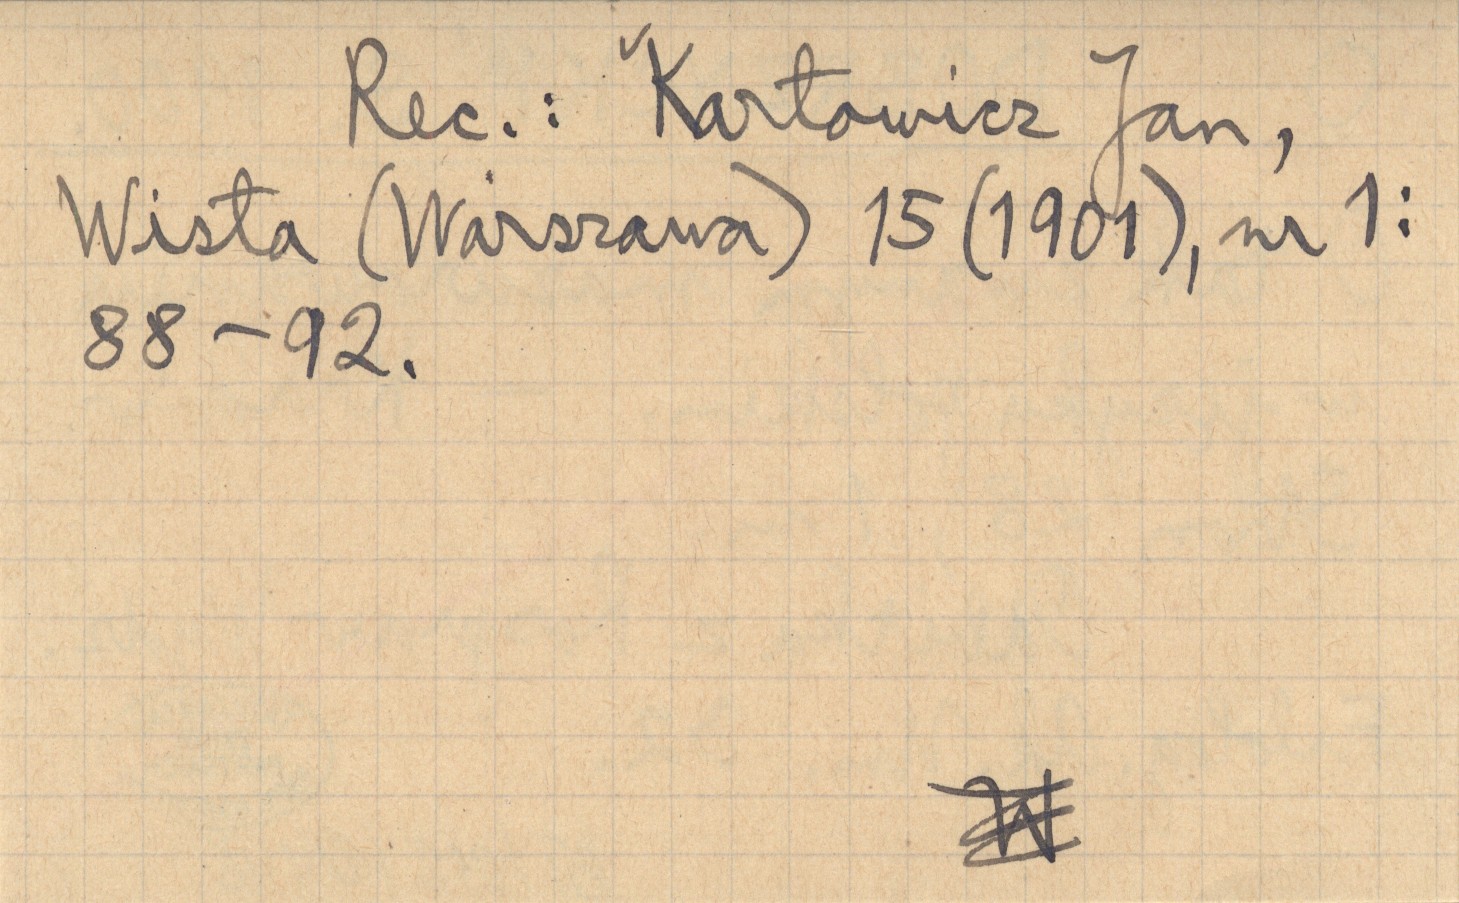 Rec.: Karłowicz Jan,
Wisła (Warszawa) 15 (1901), nr 1:
88-92.